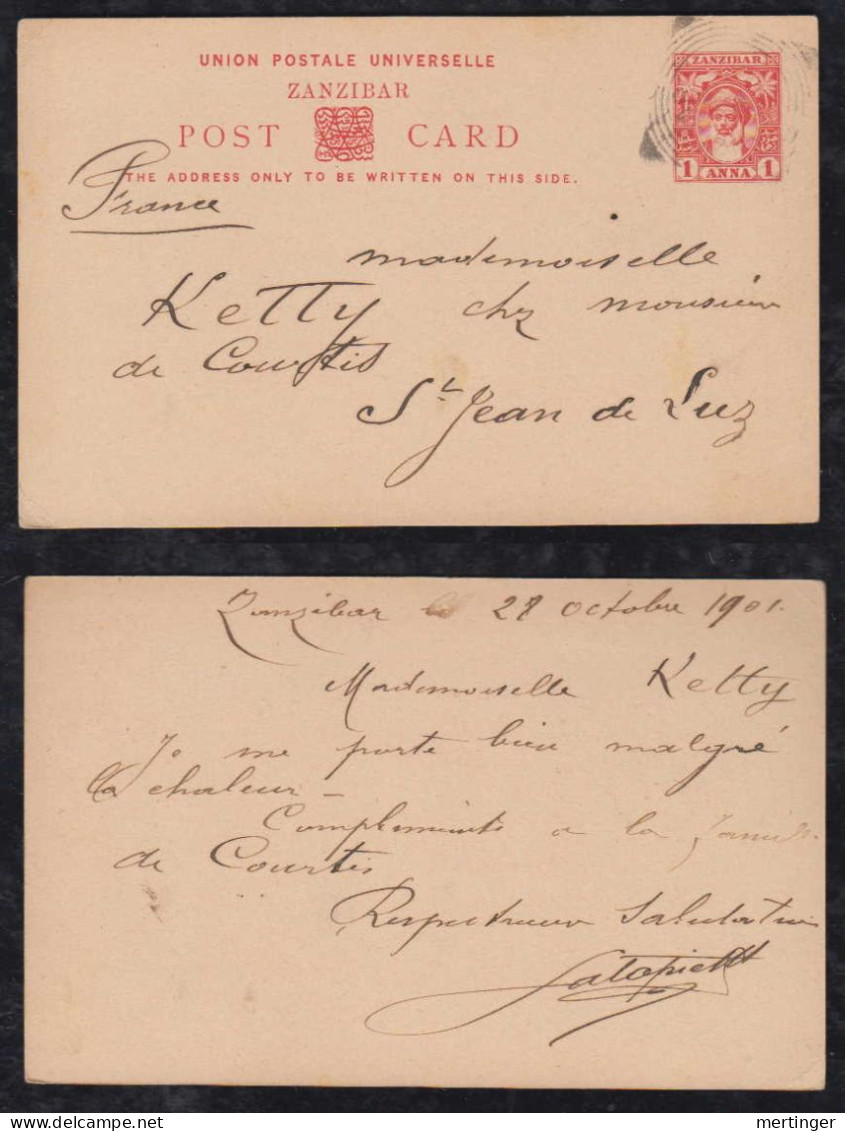 UNION POSTALE UNIVERSELLE
ZANZIBAR
POST CARD
THE ADDRESS ONLY TO BE WRITTEN ON THIS SIDE.
ZANZIBAR
1 ANNA 1
France
mademoiselle
Ketty chz monsieur
de Courtis
St Jean de Luz
Zanzibar le 28 octobre 1901.
Mademoiselle Ketty
Je me porte bien malgré
la chaleur –
Compliments a la famille
de Courtis
Respectueux Salutations
mertinger